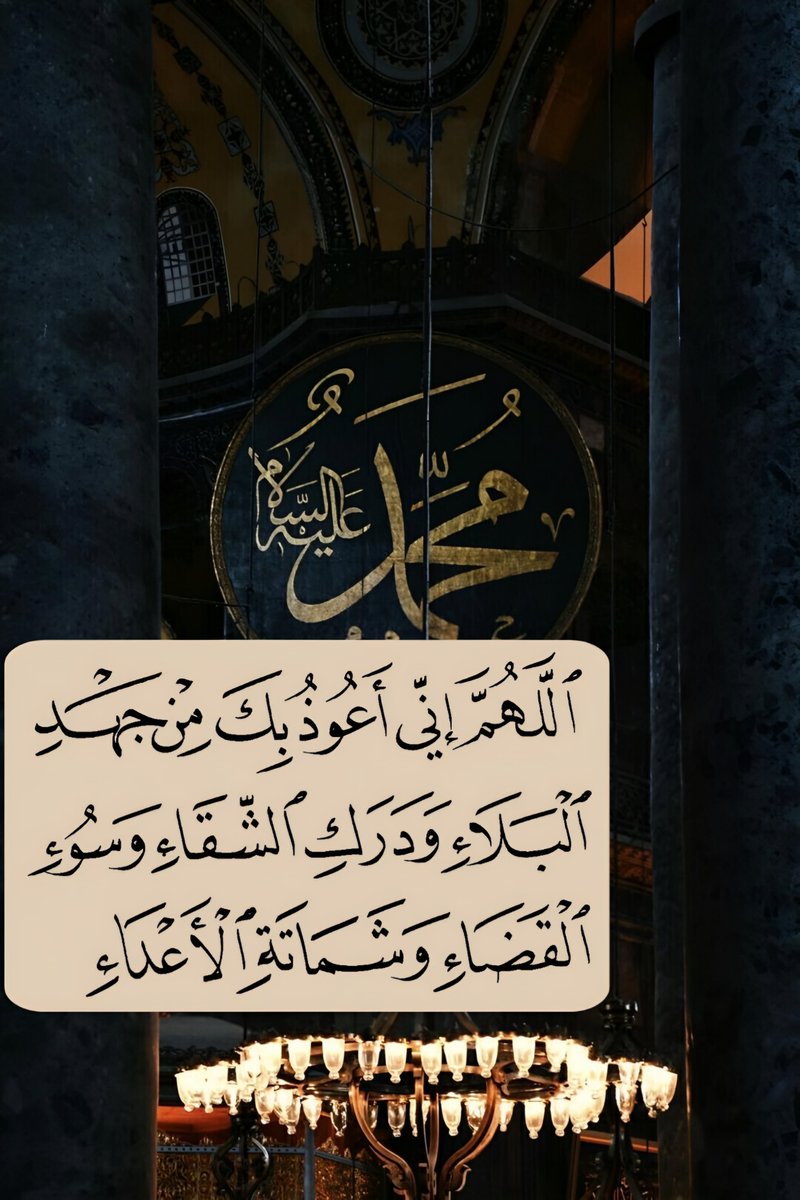 محمد
عليه السلام
ٱللَّهُمَّ إِنِّي أَعُوذُ بِكَ مِنْ جَهْدِ
ٱلْبَلَاءِ وَدَرَكِ ٱلشَّقَاءِ وَسُوءِ
ٱلْقَضَاءِ وَشَمَاتَةِ ٱلْأَعْدَاءِ